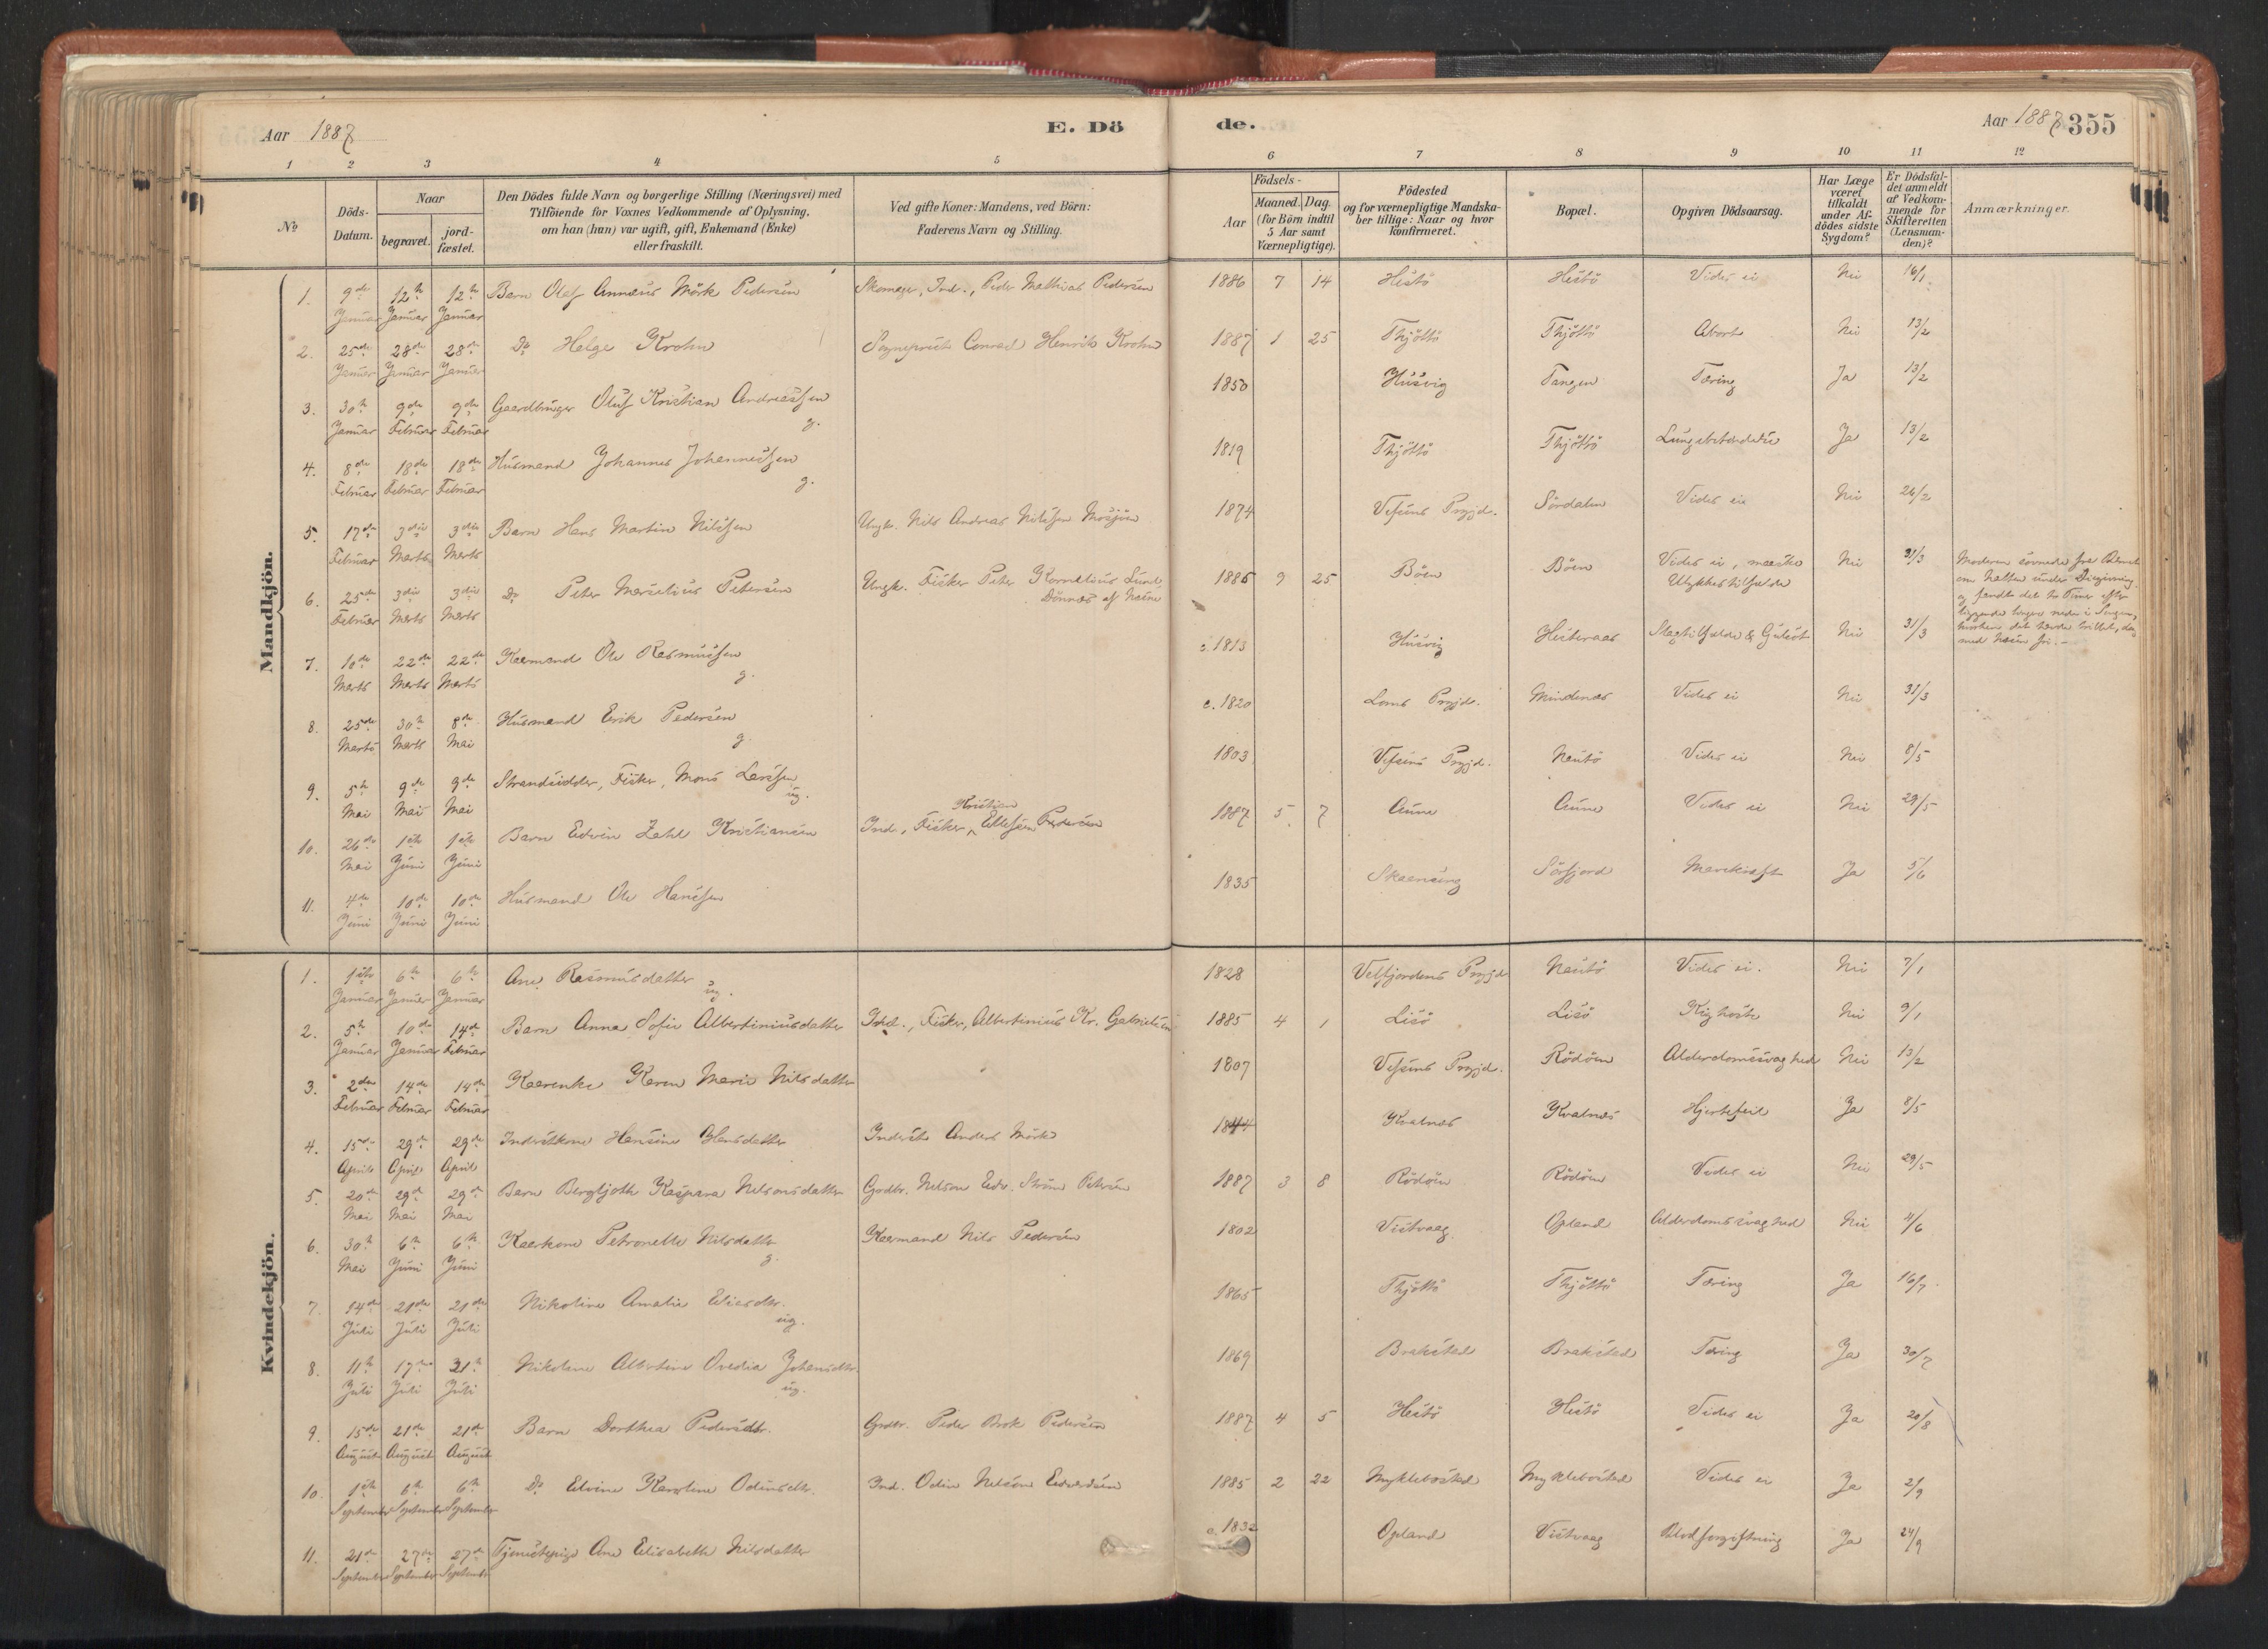 Aar 1887
E. Dö
de.
Aar 1887
355
1 2 3 4 5 6 7 8 9 10 11 12
№
Döds-Datum.
Naar
begravet.
jord-fæstet.
Den Dödes fulde Navn og borgerlige Stilling (Næringsvei) med
Tilföiende for Voxnes Vedkommende af Oplysning,
om han (hun) var ugift, gift, Enkemand (Enke)
eller fraskilt.
Ved gifte Koner: Mandens, ved Börn:
Faderens Navn og Stilling.
Födsels-
Aar
Maaned. Dag.
(for Börn indtil
5 Aar samt
Værnepligtige).
Födested
og for værnepligtige Mandska-
ber tillige: Naar og hvor
konfirmeret.
Bopæl.
Opgiven Dödsaarsag.
Har Læge
været
tilkaldt
under Af-
dödes sidste
Sygdom?
Er Dödsfal-
det anmeldt
af Vedkom-
mende for
Skifteretten
(Lensman-
den)?
Anmærkninger.
Mandkjön.
1. 9de Januar 12te Januar 12te Januar Barn Olaf Annæus Mörk Pedersen Skomager, Ind., Peder Mathias Pedersen 1886 7 14 Hestö Hestö Vides ei Nei 16/1
2. 25de Januar 28de Januar 28de Januar Do Helge Krohn Sogneprest Conrad Henrik Krohn 1887 1 25 Thjöttö Thjöttö Abort Nei 13/2
3. 30te Januar 9de Februar 9de Februar Gaardbruger Oluf Kristian Andreassen g. 1850 Husvig Tangen Tæring Ja 13/2
4. 8de Februar 18de Februar 18de Februar Husmand Johannes Johannessen g. 1819 Thjöttö Thjöttö Lungebetændelse Ja 13/2
5. 17de Februar 3die Marts 3die Marts Barn Hans Martin Nilssen Ungk. Nils Andreas Nilssen Mosjöen 1874 Vefsens Prgjd. Sördalen Vides ei Nei 26/2
6. 25de Februar 3die Marts 3die Marts Do Peter Marselius Petersen Ungk. Fisker Peter Kornelius Lund Dönnes af Næsne 1886 9 25 Böen Böen Vides ei, maaske Ulykkestilfælde Nei 31/3 Moderen sovnede fra Barnet
om Natten under Diegivning
og fandt det to Timer efter
liggende længere nede i Sengen,
7. 10de Marts 22de Marts 22de Marts Kaarmand Ole Rasmussen g. c. 1813 Husvig Hesteraas Slagtilfælde & Gulsot Nei 31/3
8. 25de Marts 30te Marts 8de Mai Husmand Erik Pedersen g. c. 1820 Loms Prgjd. Mindenæs Vides ei Nei 31/3
9. 5te Mai 9de Mai 9de Mai Strandsidder, Fisker, Mons Larssen ug. 1803 Vefsens Prgjd. Nautö Vides ei Nei 8/5
10. 26de Mai 1ste Juni 1ste Juni Barn Edvin Zahl Kristiansen Ind., Fisker, Kristian Ellefsen Pedersen 1887 5 7 Aune Aune Vides ei Nei 29/5
11. 4de Juni 10de Juni 10de Juni Husmand Ole Hanssen 1835 Skaanseng Sörfjord Mavekræft Ja 5/6
Kvindekjön.
1. 1ste Januar 6te Januar 6te Januar Ane Rasmusdatter ug. 1828 Velfjordens Prgjd. Nautö Vides ei. Nei 7/1
2. 5te Januar 10de Januar 14de Februar Barn Anna Sofie Albertiniusdatter Ind., Fisker, Albertinius Kr. Gabrielsen 1885 4 1 Lisö Lisö Kighoste Nei 9/1
3. 2den Februar 14de Februar 14de Februar Kaarenke Karen Marie Nilsdatter 1807 Vefsens Prgjd. Rödöen Alderdomssvaghed Nei 13/2
4. 15de April 29de April 29de April Inderstkone Hansine Hansdatter Inderst Anders Mörk 1844 Kvalnæs Kvalnæs Hjertefeil Ja 8/5
5. 20de Mai 29de Mai 29de Mai Barn Bergljoth Kaspara Nelsonsdatter Gardbr. Nelson Edv. Ström Petersen 1887 3 8 Rödöen Rödöen Vides ei Nei 29/5
6. 30te Mai 6te Juni 6te Juni Kaarkone Petronelle Nilsdatter g. Kaarmand Nils Pedersen 1802 Vistvaag Opland Alderdomssvaghed Nei 4/6
7. 14de Juli 21de Juli 21de Juli Nikoline Amalie Eliasdtr. ug. 1865 Thjöttö Thjöttö Tæring Ja 16/7
8. 11te Juli 17de Juli 31te Juli Nikoline Albertine Ovedia Johansdtr. ug. 1869 Brakstad Brakstad Tæring Ja 30/7
9. 15de August 21de August 21de August Barn Dorthea Pedersdtr. Grdbr. Peder Brok Pedersen 1887 4 5 Hestö Hestö Vides ei Ja 20/8
10. 1ste September 6te September 6te September Do Edvine Karstine Odinsdtr. Ind. Odin Nelson Edvardsen 1885 2 22 Myklebostad Myklebostad Vides ei Ja 2/9
11. 21de September 27de September 27de September Tjenestepige Ane Elisabeth Nilsdatter c. 1832 Opland Vistvaag Blodforgiftning Ja 24/9